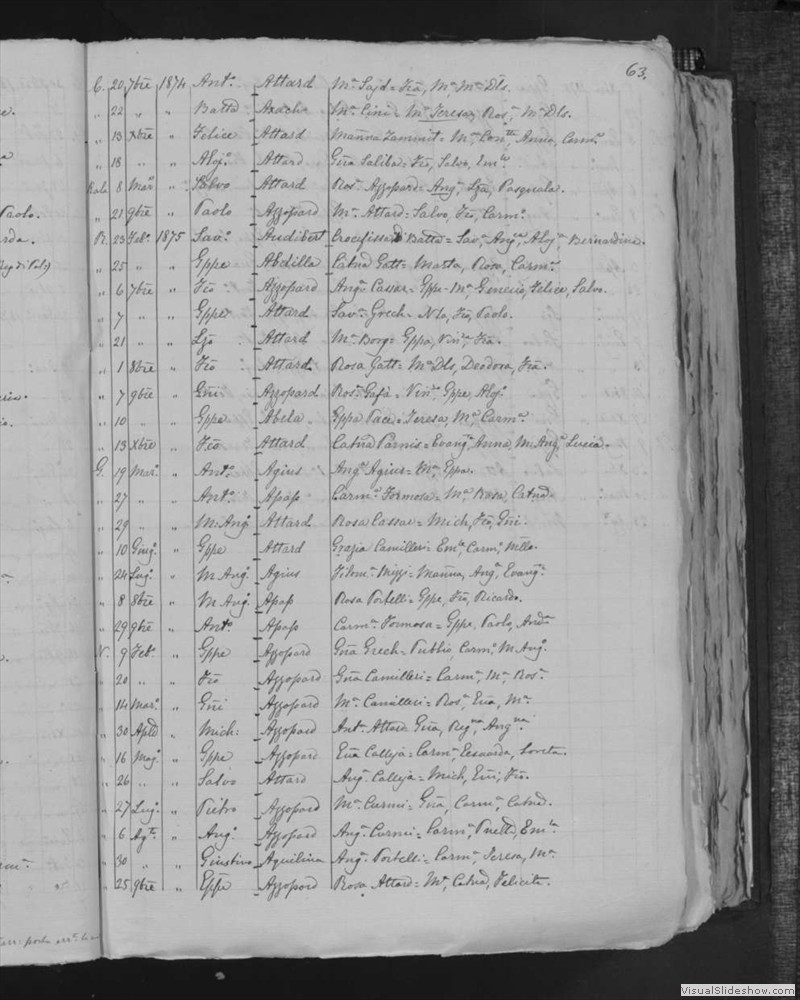 63.
C. 20 7bre 1874 Anto. Attard Ma. Sajd = Fca, Ma. Ma. Dls.
" 22 " " Batta Axach Ma. Cini = Ma. Teresa, Rosa, Ma. Dls.
" 13 Xbre " Felice Attard Manna Zammit = Ma. Conta. Anna, Carma.
" 18 " " Alojo. Attard Gña Saliba = Fco, Salvo, Emla.
8 Mar. " Salvo Attard Rosa. Azzopard = Anga. Lza, Pasquala.
" 21 9bre " Paolo Azzopard Ma. Attard = Salvo, Fco, Carmo.
R. 23 Feb. 1875 Savo. Audibert Crocifissa Batta = Sava. Anga. Aloja. Bernardina.
" 25 " " Gppe Abdilla Catna Gatt = Marta, Rosa, Carma.
" 6 7bre " Fco Azzopard Anga. Cassar = Gppe Ma. Felice, Salvo.
" 7 " " Gppe Attard Sava. Grech = Nlo, Fco, Paolo.
" 21 " " Lzo Attard Ma. Borg = Gppa, Vinca, Fca.
" 1 8bre " Fco Attard Rosa Gatt = Ma. Dls, Deodora, Fca.
" 7 9bre " Gñi Azzopard Rosa. Gafa = Vinco. Gppe, Alojo.
" 10 " " Gppe Abela Gppa Pace = Teresa, Ma. Carma.
" 13 Xbre " Fco Attard Catna Parnis = Evanga. Anna, M. Anga. Lucia.
G. 19 Mar. " Anto. Agius Anga. Agius = Ma. Gppa.
" 27 " " Anto. Apap Carma. Formosa = Ma. Rosa, Catna.
" 29 " " M. Ango. Attard Rosa Cassar = Mich, Fco, Gñi.
" 10 Giugo. " Gppe Attard Grazia Camilleri = Emla. Carma.
" 24 Lugo. " M Ango. Agius Filoma. Mizzi = Manna, Anga. Evanga.
" 8 8bre " M Ango. Apap Rosa Portelli = Gppe, Fco, Ricardo.
" 29 9bre " Anto. Apap Carma. Formosa = Gppe, Paolo, Andra.
N. 9 Feb. " Gppe Azzopard Gña Grech = Publio, Carmo. M Ango.
" 20 " " Fco Azzopard Gña Camilleri = Carma, Ma. Rosa.
" 14 Mar. " Gñi Azzopard Ma. Camilleri = Rosa, Gña, Ma.
" 30 Aple " Mich: Azzopard Anta. Attard = Gña, Regna, Angna.
" 16 Mago. " Gppe Azzopard Gña Calleja = Carma, Loreta.
" 26 " " Salvo Attard Anga. Calleja = Mich, Fco.
" 27 Lugo. " Pietro Azzopard Ma. Curmi = Gña, Carma, Catna.
" 6 Agto. " Ango. Azzopard Anga. Curmi = Carma, Emla.
" 30 " " Giustino Aquilina Anga. Portelli = Carma, Teresa, Ma.
" 25 9bre " Gppe Azzopard Rosa Attard = Ma, Catna, Felicita.
VisualSlideshow.com